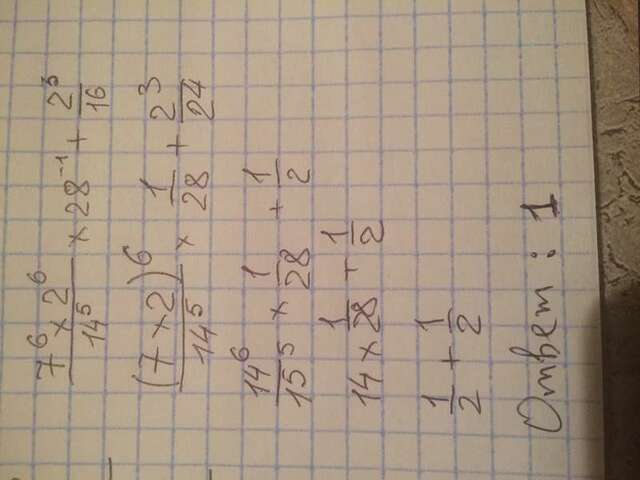 7⁶ × 2⁶ / 14⁵ × 28⁻¹ + 2³ / 16
(7 × 2)⁶ / 14⁵ × 1 / 28 + 2³ / 24
14⁶ / 15⁵ × 1 / 28 + 1 / 2
14 × 1 / 28 + 1 / 2
1 / 2 + 1 / 2
Ответ : 1